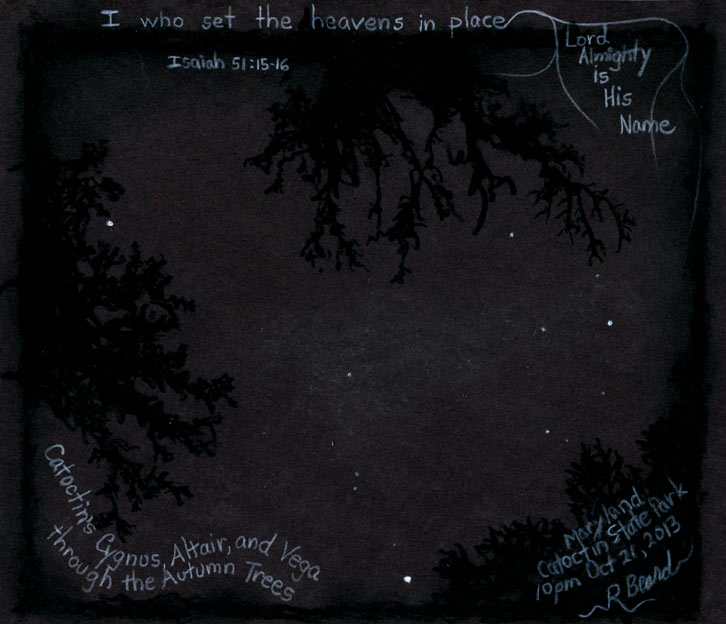 I who set the heavens in place
Lord
Almighty
is
His
Name
Isaiah 51:15-16
Catoctin's Cygnus, Altair, and Vega
through the Autumn Trees
Maryland
Catoctin State Park
10pm Oct 21, 2013
R Beard